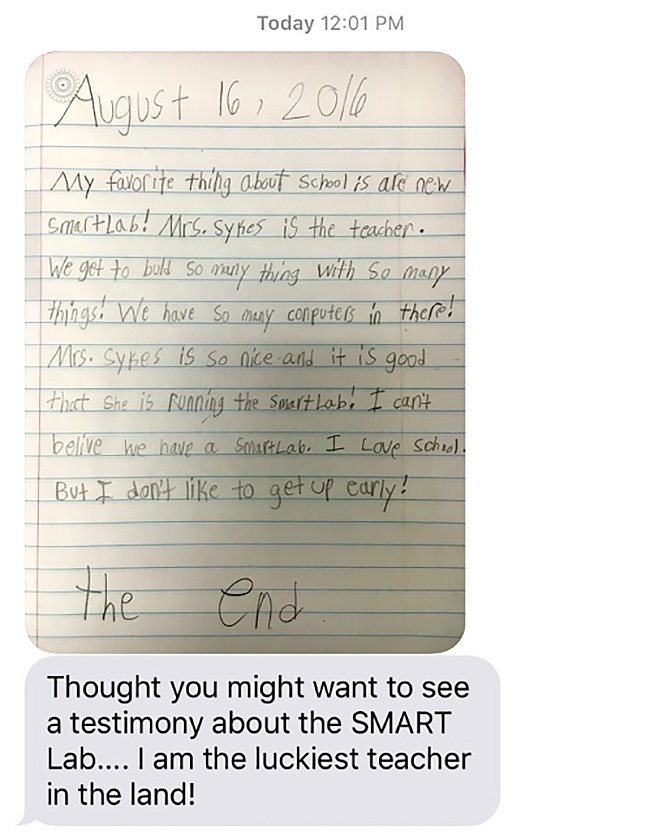 Today 12:01 PM
August 16, 2016
My favorite thing about school is are new
SmartLab! Mrs. Sykes is the teacher.
We get to buld so many thing with so many
things! We have so many conputers in there!
Mrs. Sykes is so nice and it is good
that she is running the SmartLab! I can't
belive we have a SmartLab. I Love School.
But I don't like to get up early!
the end
Thought you might want to see
a testimony about the SMART
Lab.... I am the luckiest teacher
in the land!